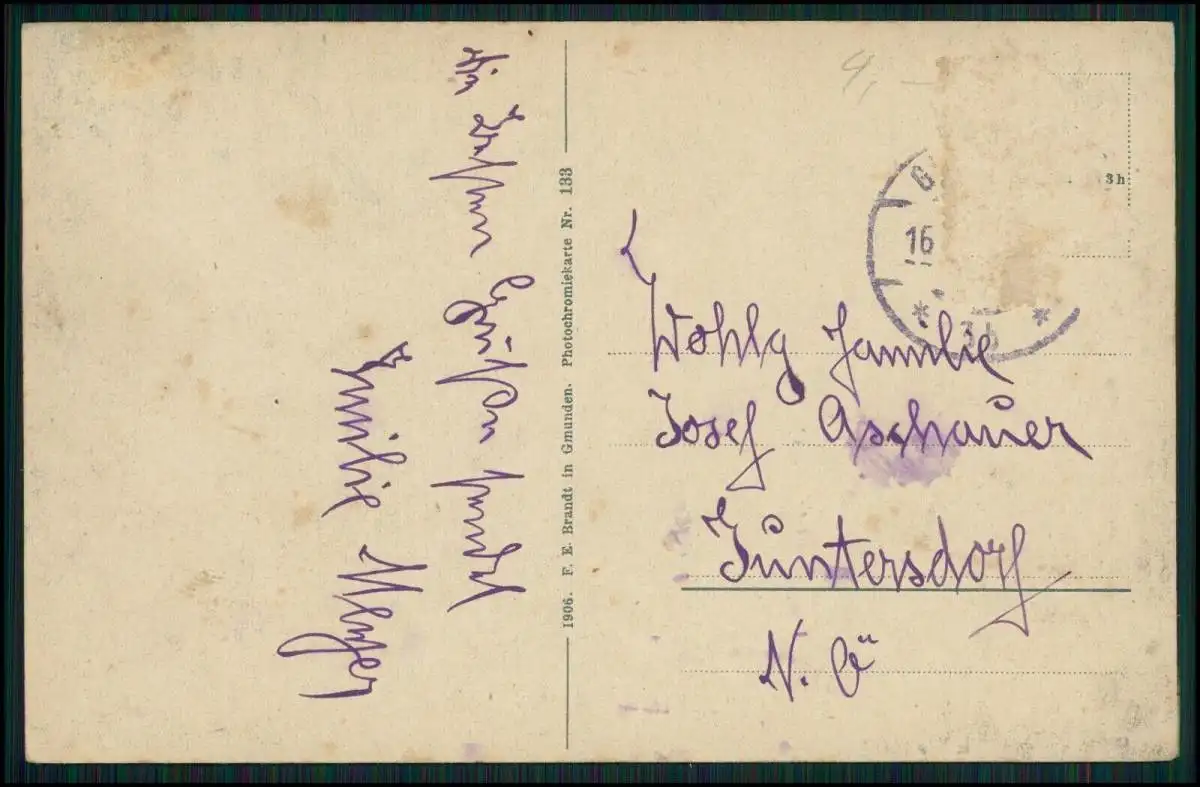 Die besten Grüßen sendet
Familie Mayer
1906. F. E. Brandt in Gmunden. Photochromiekarte Nr. 133
4,—
3 h
G
16
3b
Wohlg Familie
Josef Aschauer
Guntersdorf
N. Ö